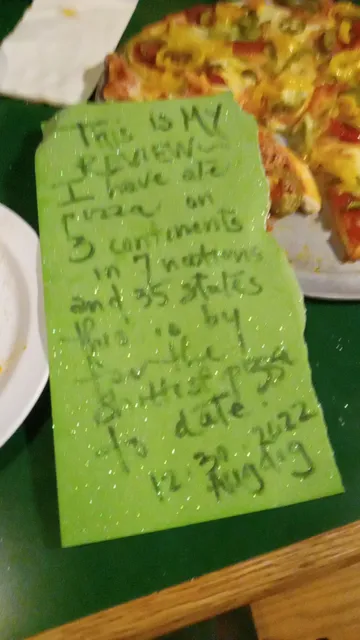 This is MY
REVIEW
I have ate
Pizza on
3 continents
in 7 nations
and 35 states
this is by
far the
pizza
to date
12.30.2022